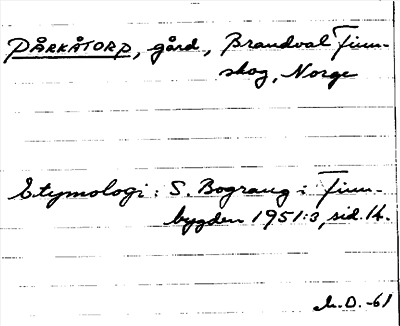 PÅRKÅTORP, gård, Brandval Finn-
skog, Norge
Etymologi: S. Bograng i Finn-
bygden 1951:3, sid. 14.
M.O. -61